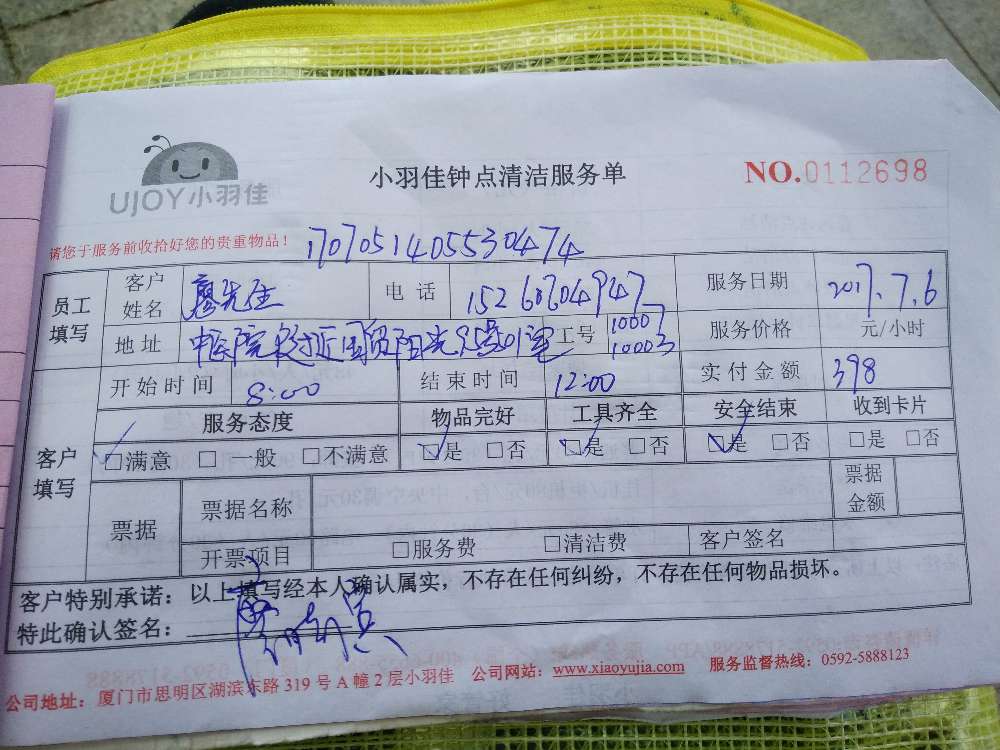 UJOY小羽佳
小羽佳钟点清洁服务单
NO.0112698
请您于服务前收拾好您的贵重物品！
1707051405530474
员工填写 客户姓名 廖先生 电话 服务日期 2017.7.6
地址 工号 10007 10003 服务价格 元/小时
开始时间 8:00 结束时间 12:00 实付金额 398
客户填写 服务态度 物品完好 工具齐全 安全结束 收到卡片
□满意 □一般 □不满意 □是 □否 □是 □否 □是 □否 □是 □否
票据 票据名称 票据金额
开票项目 □服务费 □清洁费 客户签名
客户特别承诺：以上填写经本人确认属实，不存在任何纠纷，不存在任何物品损坏。
特此确认签名：
公司地址：厦门市思明区湖滨东路319号A幢2层小羽佳 公司网站：www.xiaoyujia.com 服务监督热线：0592-5888123